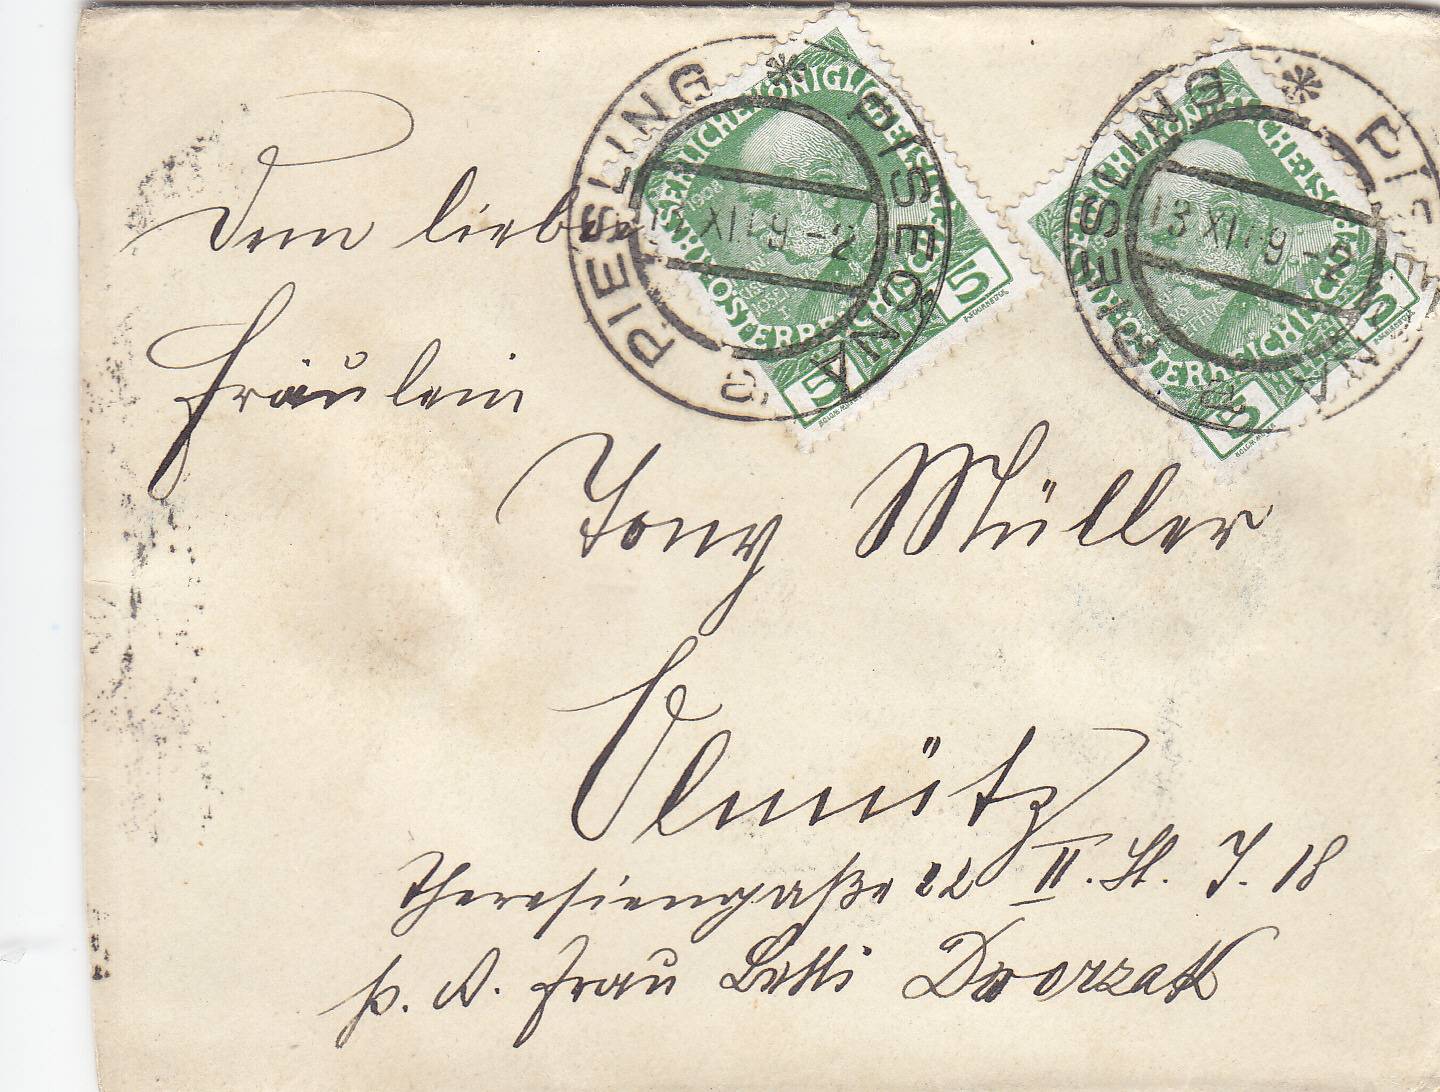 PIESLING * PISEČNA
13 XII 9 -2
KAISERLICHE KÖNIGLICHE
ÖSTERREICHISCHE
5 5
PIESLING * PISEČNA
13 XII 9 -2
KÖNIGLICHE
ÖSTERREICHISCHE
5 5
Dem liebe
Fräulein
Tony Müller
Olmütz
Theresiengaße 22 II. St. T. 18
p. A. Frau Betti Dworzak